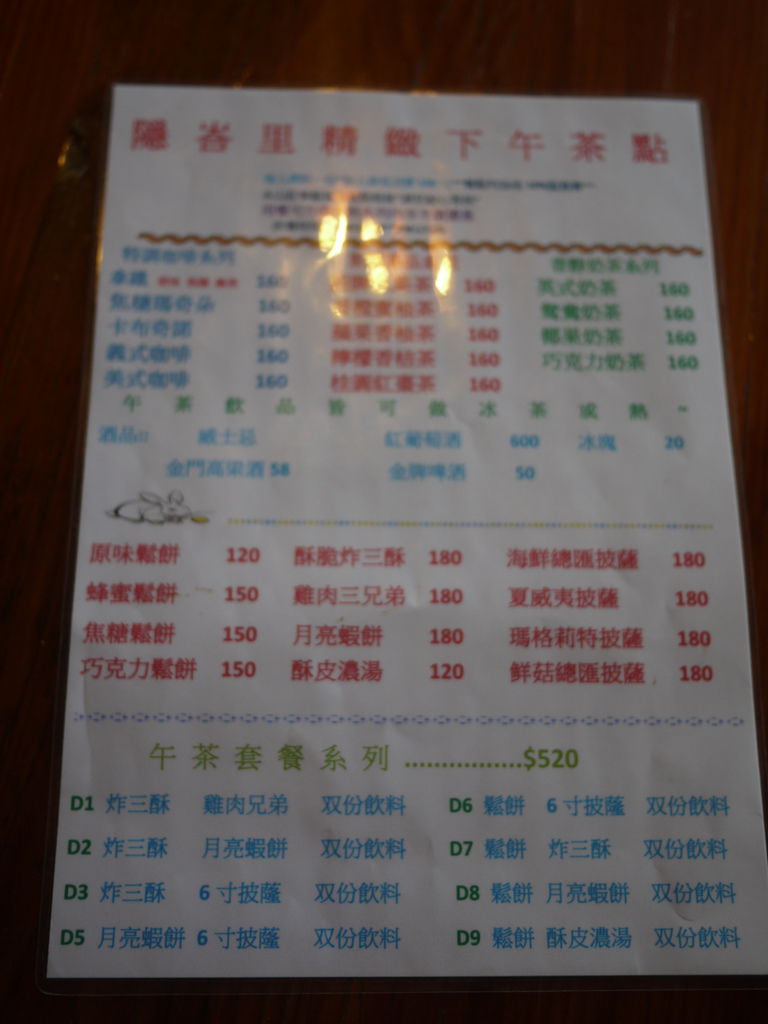 隱峇里精緻下午茶點
特調咖啡系列 香醇奶茶系列
拿鐵 160 160 英式奶茶 160
焦糖瑪奇朵 160 160 鴛鴦奶茶 160
卡布奇諾 160 蘋果香柚茶 160 椰果奶茶 160
義式咖啡 160 檸檬香桔茶 160 巧克力奶茶 160
美式咖啡 160 桂圓紅棗茶 160
午茶飲品皆可做冰茶或熱~
酒品:: 威士忌 紅葡萄酒 600 冰塊 20
金門高梁酒 58 金牌啤酒 50
原味鬆餅 120 酥脆炸三酥 180 海鮮總匯披薩 180
蜂蜜鬆餅 150 雞肉三兄弟 180 夏威夷披薩 180
焦糖鬆餅 150 月亮蝦餅 180 瑪格莉特披薩 180
巧克力鬆餅 150 酥皮濃湯 120 鮮菇總匯披薩 180
午茶套餐系列 ................$520
D1 炸三酥 雞肉兄弟 双份飲料 D6 鬆餅 6寸披薩 双份飲料
D2 炸三酥 月亮蝦餅 双份飲料 D7 鬆餅 炸三酥 双份飲料
D3 炸三酥 6寸披薩 双份飲料 D8 鬆餅 月亮蝦餅 双份飲料
D5 月亮蝦餅 6寸披薩 双份飲料 D9 鬆餅 酥皮濃湯 双份飲料